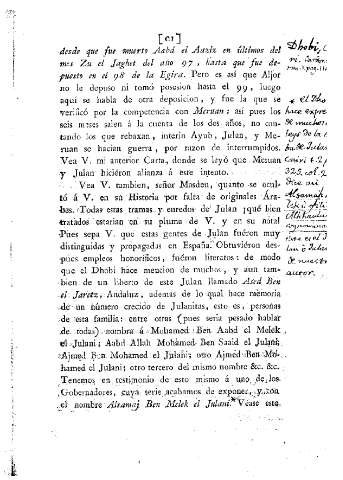 [61]
desde que fue muerto Aabd el Aaziz en últimos del
mes Zu el Jaghet del año 97, hasta que fue de-
puesto en el 98 de la Egira. Pero es así que Aljor
no le depuso ni tomó posesion hasta el 99, luego
aquí se habla de otra deposicion, y fue la que se
verificó por la competencia con Meruan: así pues los
seis meses salen á la cuenta de los dos años, no con-
tando los que rebaxan, interin Ayub, Julan, y Me-
ruan se hacian guerra, por razon de interrumpidos.
Vea V. mi anterior Carta, donde se leyó que Meruan
y Julan hiciéron alianza á este intento.
Vea V. tambien, señor Masdeu, quanto se omi-
tió á V. en su Historia por falta de originales Ara-
bes. Todas estas tramas y enredos de Julan ¡qué bien
tratados estarian en su pluma de V. y en su nota!
Pues sepa V. que estas gentes de Julan fuéron muy
distinguidas y propagadas en España. Obtuviéron des-
pues empleos honoríficos, fuéron literatos: de modo
que el Dhobi hace mencion de muchos, y aun tam-
bien de un liberto de este Julan llamado Ased Ben
el Jaretz, Andaluz, ademas de lo qual hace memoria
de un número crecido de Julanitas, esto es, personas
de esta familia: entre otras (pues seria pesado hablar
de todas) nombra á Mohamed Ben Aabd el Melek
el Julani; Aabd Allah Mohamed Ben Saaid el Julani;
Ajmed Ben Mohamed el Julani; otro Ajmed Ben Mo-
hamed el Julani; otro tercero del mismo nombre &c. &c.
Tenemos en testimonio de esto mismo á uno de los
Gobernadores, cuya serie acabamos de exponer, y con
el nombre Alsamaj Ben Melek el Julani. Véase este
Dhobi,
el Dho
hace expre
de mucho
de la
de Julan
mi
autor.